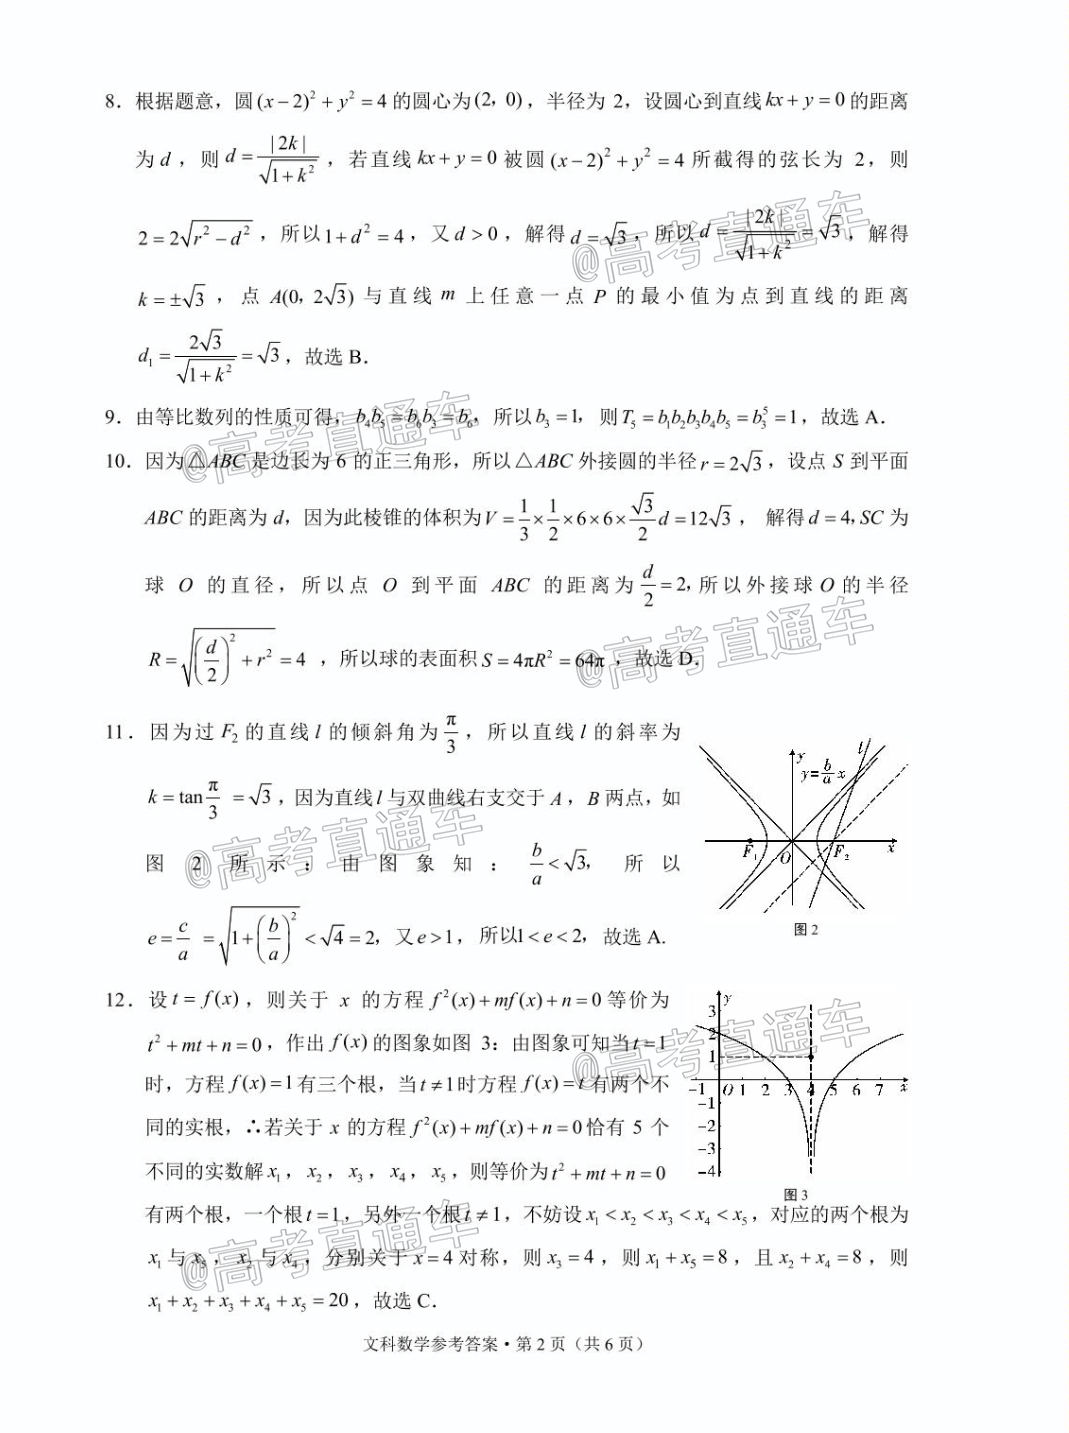 8．根据题意，圆(x－2)²＋y²＝4的圆心为(2，0)，半径为 2，设圆心到直线kx＋y＝0的距离
为 d ，则 d＝|2k|/√(1＋k²)，若直线 kx＋y＝0 被圆 (x－2)²＋y²＝4 所截得的弦长为 2，则
2＝2√(r²－d²)，所以1＋d²＝4，又d＞0，解得d＝√3，所以d＝|2k|/√(1＋k²)＝√3，解得
k＝±√3 ，点 A(0，2√3) 与直线 m 上任意一点 P 的最小值为点到直线的距离
d₁＝2√3/√(1＋k²)＝√3，故选 B．
9．由等比数列的性质可得，b₄b₅＝b₆b₃＝b₆，所以b₃＝1，则T₅＝b₁b₂b₃b₄b₅＝b₃⁵＝1，故选 A．
10．因为△ABC 是边长为 6 的正三角形，所以△ABC 外接圆的半径r＝2√3，设点 S 到平面
ABC 的距离为 d，因为此棱锥的体积为V＝1/3×1/2×6×6×√3/2 d＝12√3， 解得d＝4，SC 为
球 O 的直径，所以点 O 到平面 ABC 的距离为 d/2＝2，所以外接球 O 的半径
R＝√((d/2)²＋r²)＝4 ，所以球的表面积S＝4πR²＝64π，故选 D．
11．因为过 F₂ 的直线 l 的倾斜角为 π/3，所以直线 l 的斜率为
k＝tan π/3 ＝√3，因为直线l与双曲线右支交于 A，B 两点，如
图 2 所示：由图象知： b/a＜√3，所以
e＝c/a ＝√(1＋(b/a)²)＜√4＝2，又e＞1，所以1＜e＜2，故选 A.
y
l
y=b/a x
F₁
O
F₂
x
图 2
12．设t＝f(x)，则关于 x 的方程 f²(x)＋mf(x)＋n＝0 等价为
t²＋mt＋n＝0，作出 f(x) 的图象如图 3：由图象可知当t＝1
时，方程 f(x)＝1有三个根，当t≠1时方程 f(x)＝t 有两个不
同的实根，∴若关于 x 的方程 f²(x)＋mf(x)＋n＝0恰有 5 个
不同的实数解x₁，x₂，x₃，x₄，x₅，则等价为t²＋mt＋n＝0
有两个根，一个根t＝1，另外一个根t≠1，不妨设 x₁＜x₂＜x₃＜x₄＜x₅，对应的两个根为
x₁ 与 x₅，x₂ 与 x₄，分别关于 x＝4 对称，则 x₃＝4，则 x₁＋x₅＝8，且 x₂＋x₄＝8，则
x₁＋x₂＋x₃＋x₄＋x₅＝20，故选 C．
y
3
2
1
－1 O 1 2 3 4 5 6 7 x
－1
－2
－3
－4
图 3
文科数学参考答案·第 2 页（共 6 页）
@高考直通车
@高考直通车
@高考直通车
@高考直通车
@高考直通车
@高考直通车